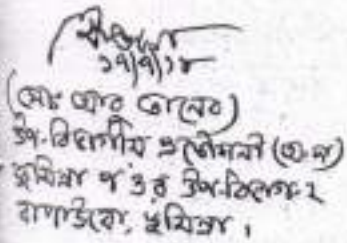 ১৭/৭/১৮
(মোঃ আবু তালেব)
উপ-বিভাগীয় প্রকৌশলী (চঃ দাঃ)
কুমিল্লা পওর উপ-বিভাগ-২
বাপাউবো, কুমিল্লা।